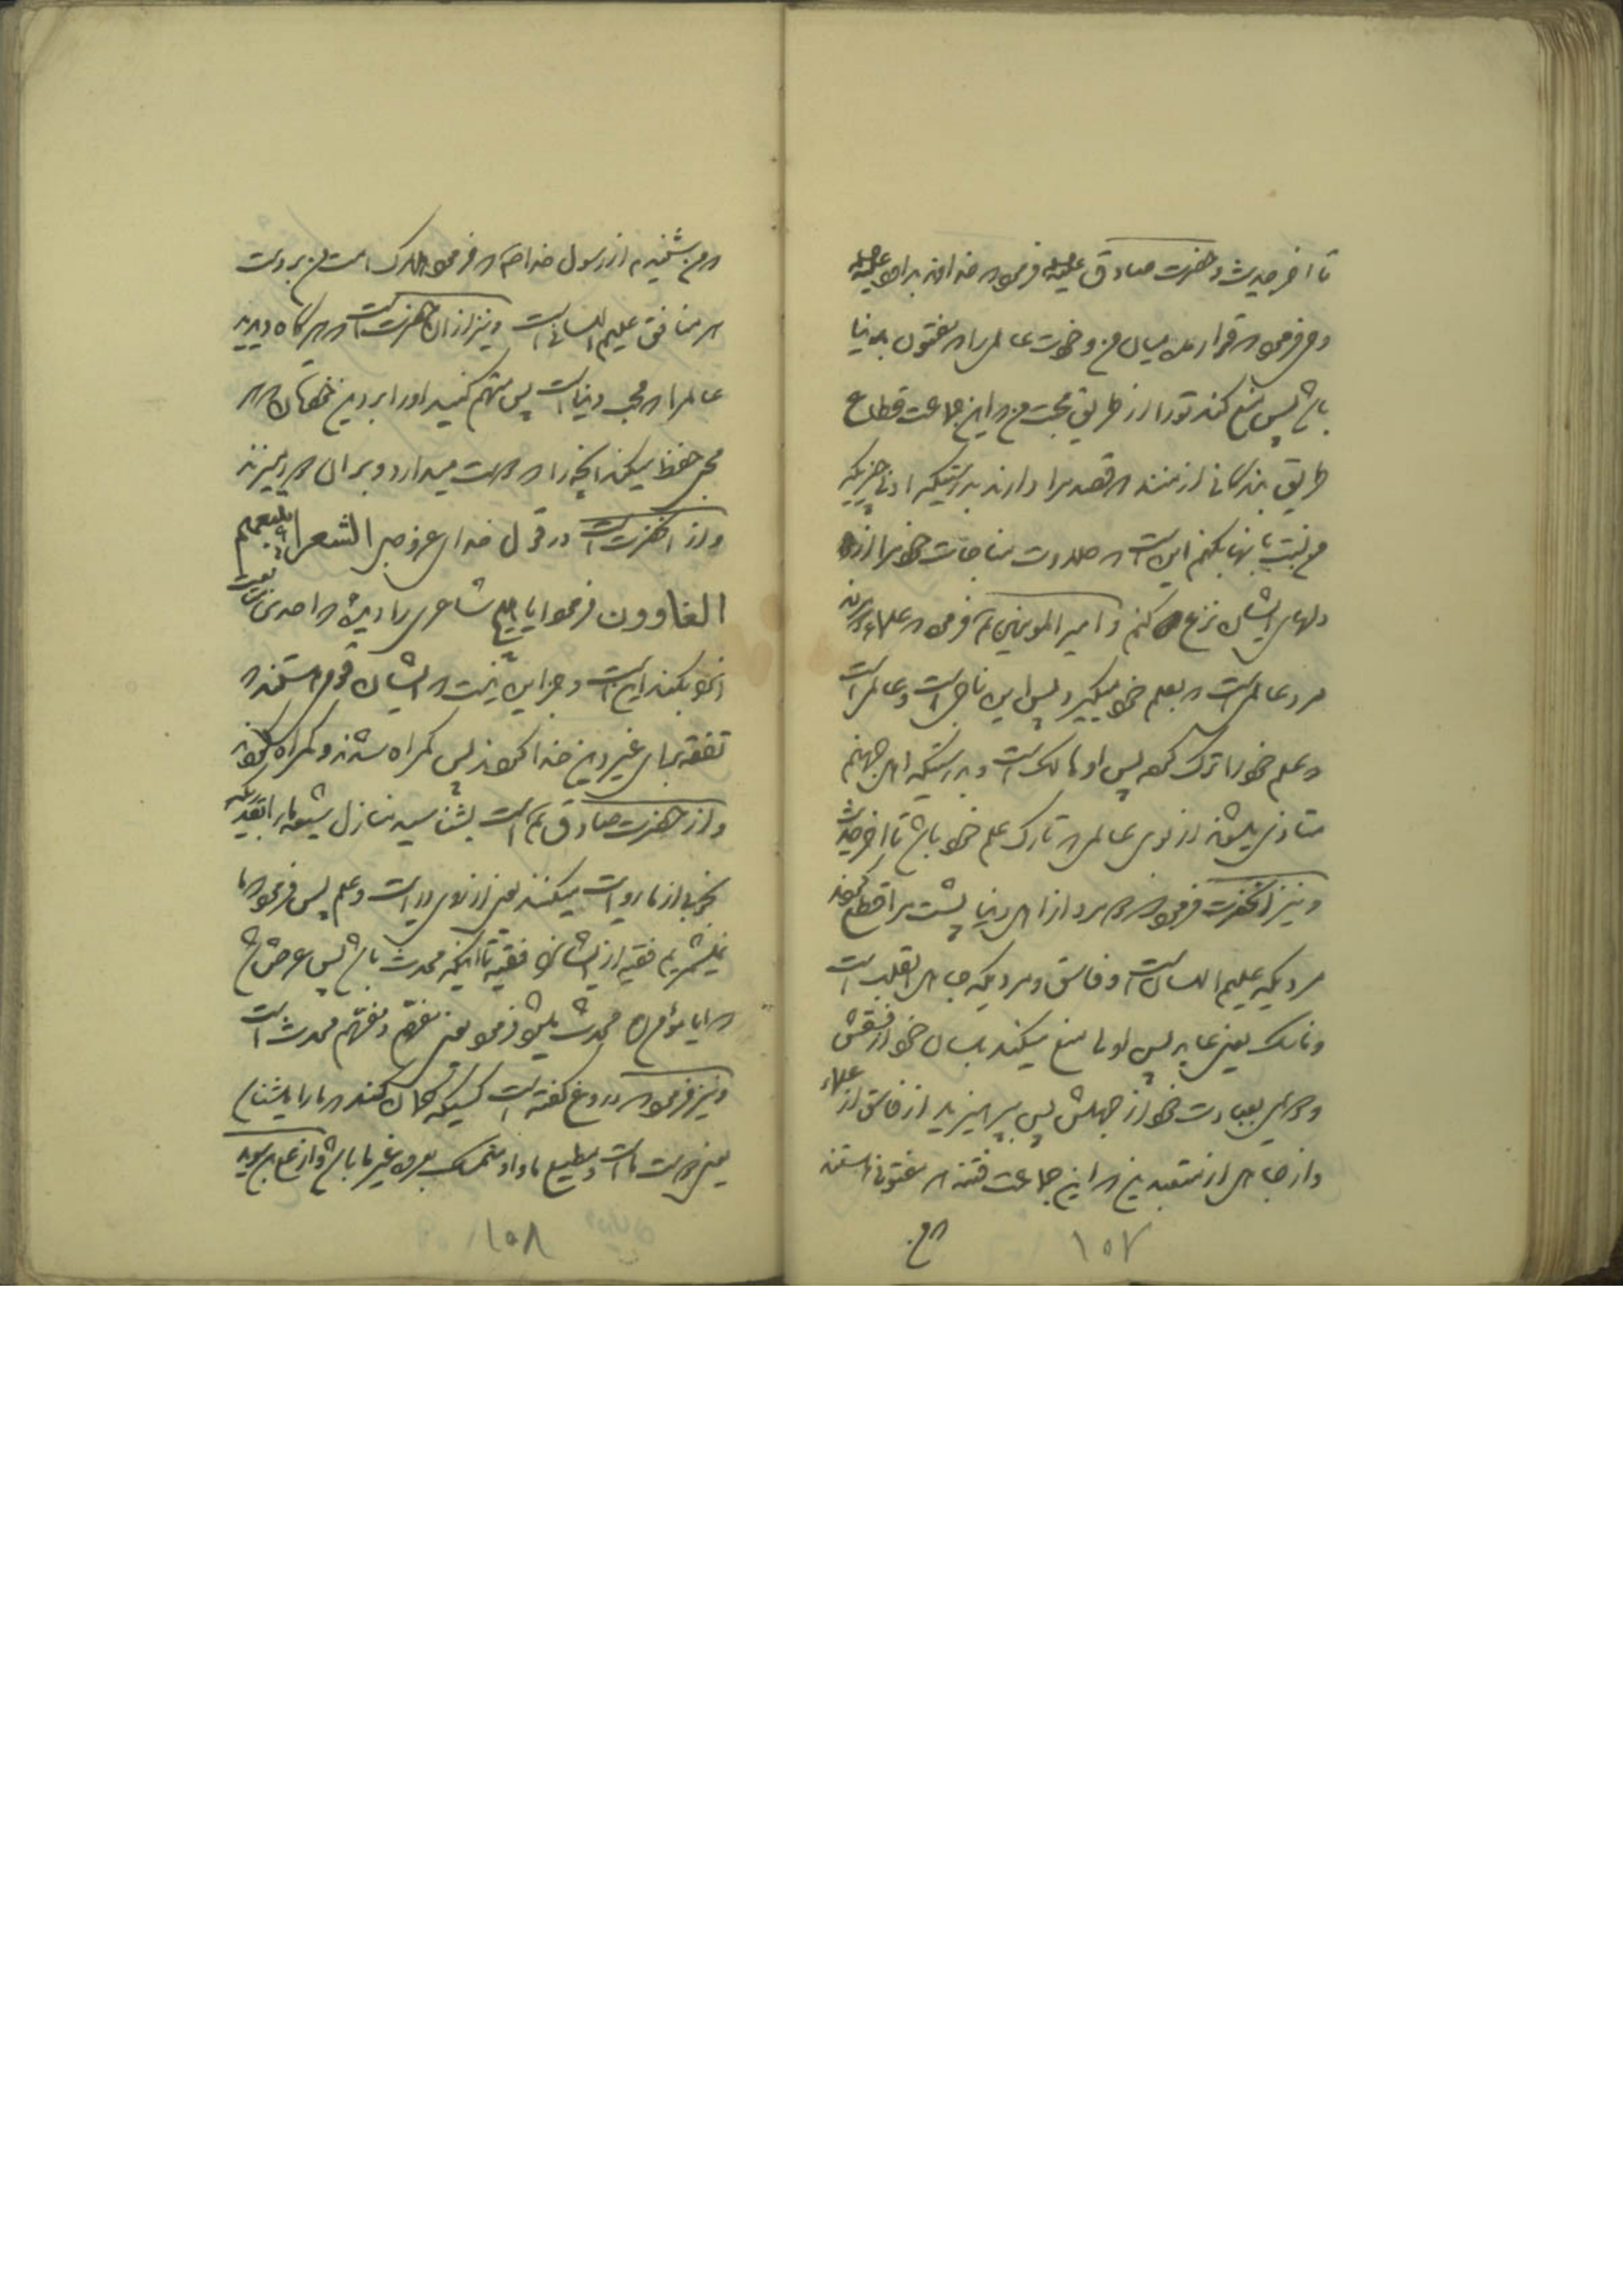 تا اخر حدیث و حضرت صادق علیه فرمود که خداوند بداود علیه
وحی فرمود که قرار مده میان من و خودت عالمی را که مفتون بدنیا
باشد پس منع کند تو را از طریق محبت من که این جماعت قطاع
طریق بندگانی از منند که قصد مرا دارند بدرستیکه ادنی چیزیکه
من نسبت بانها بکنم این است که حلاوت مناجات خود را از
دلهای ایشان نزع کنم و امیر المومنین ع فرمود که علماء
مرد عالمی است که بعلم خود میگیرد پس این ناجی است و عالمی است
که علم خود را ترک کرده پس او هالک است و بدرستیکه اهل جهنم
متاذی میشوند از بوی عالمی که تارک علم خود باشد تا اخر حدیث
و نیز انحضرت فرمود که دو مرد از اهل دنیا پشت مرا قطع کردند
مردیکه علیم اللسان است و فاسق و مردیکه جاهل القلب است
و ناسک یعنی عابد پس اولی منع میکند بلسان خود از فسقش
و دویمی بعبادت خود از جهلش پس بپرهیزید از فاسق از علماء
و از جاهل از متعبدین که این جماعت فتنه هر مفتونی هستند
که من
۱۵۷
که من شنیدم از رسول خدا ص که فرمود هلاک امت من بر دست
هر منافق علیم اللسانی است و نیز از ان حضرت است که هرگاه دیدید
عالمی را که محب دنیا است پس متهم کنید او را بر دین خودتان که هر
محبی حفظ میکند انچه را که دوست میدارد و بر ان
و از انحضرت است در قول خدای عز و جل الشعراء یتبعهم
الغاوون فرمود ایا هیچ شاعری را دیده که احدی تبعیت
او بکند این است و جز این نیست که ایشان قومی هستند که
تفقه برای غیر دین خدا کردند پس گمراه شدند و گمراه کردند
و از حضرت صادق ع است بشناسید منازل شیعه ما را بقدریکه
بخوبی از ما روایت میکنند یعنی از روی درایت و علم پس فرمود که ما
نمیشمریم فقیه از ایشان را فقیه تا اینکه محدث باشد پس عرض شد
که ایا مؤمن محدث میشود فرمود یعنی مفهم و مفهم محدث است
و نیز فرمود که دروغ گفته است کسیکه گمان کند که ما را میشناسد
یعنی دوست ما است و مطیع ما و او متمسک بعروه غیر ما باشد و از
۱۵۸